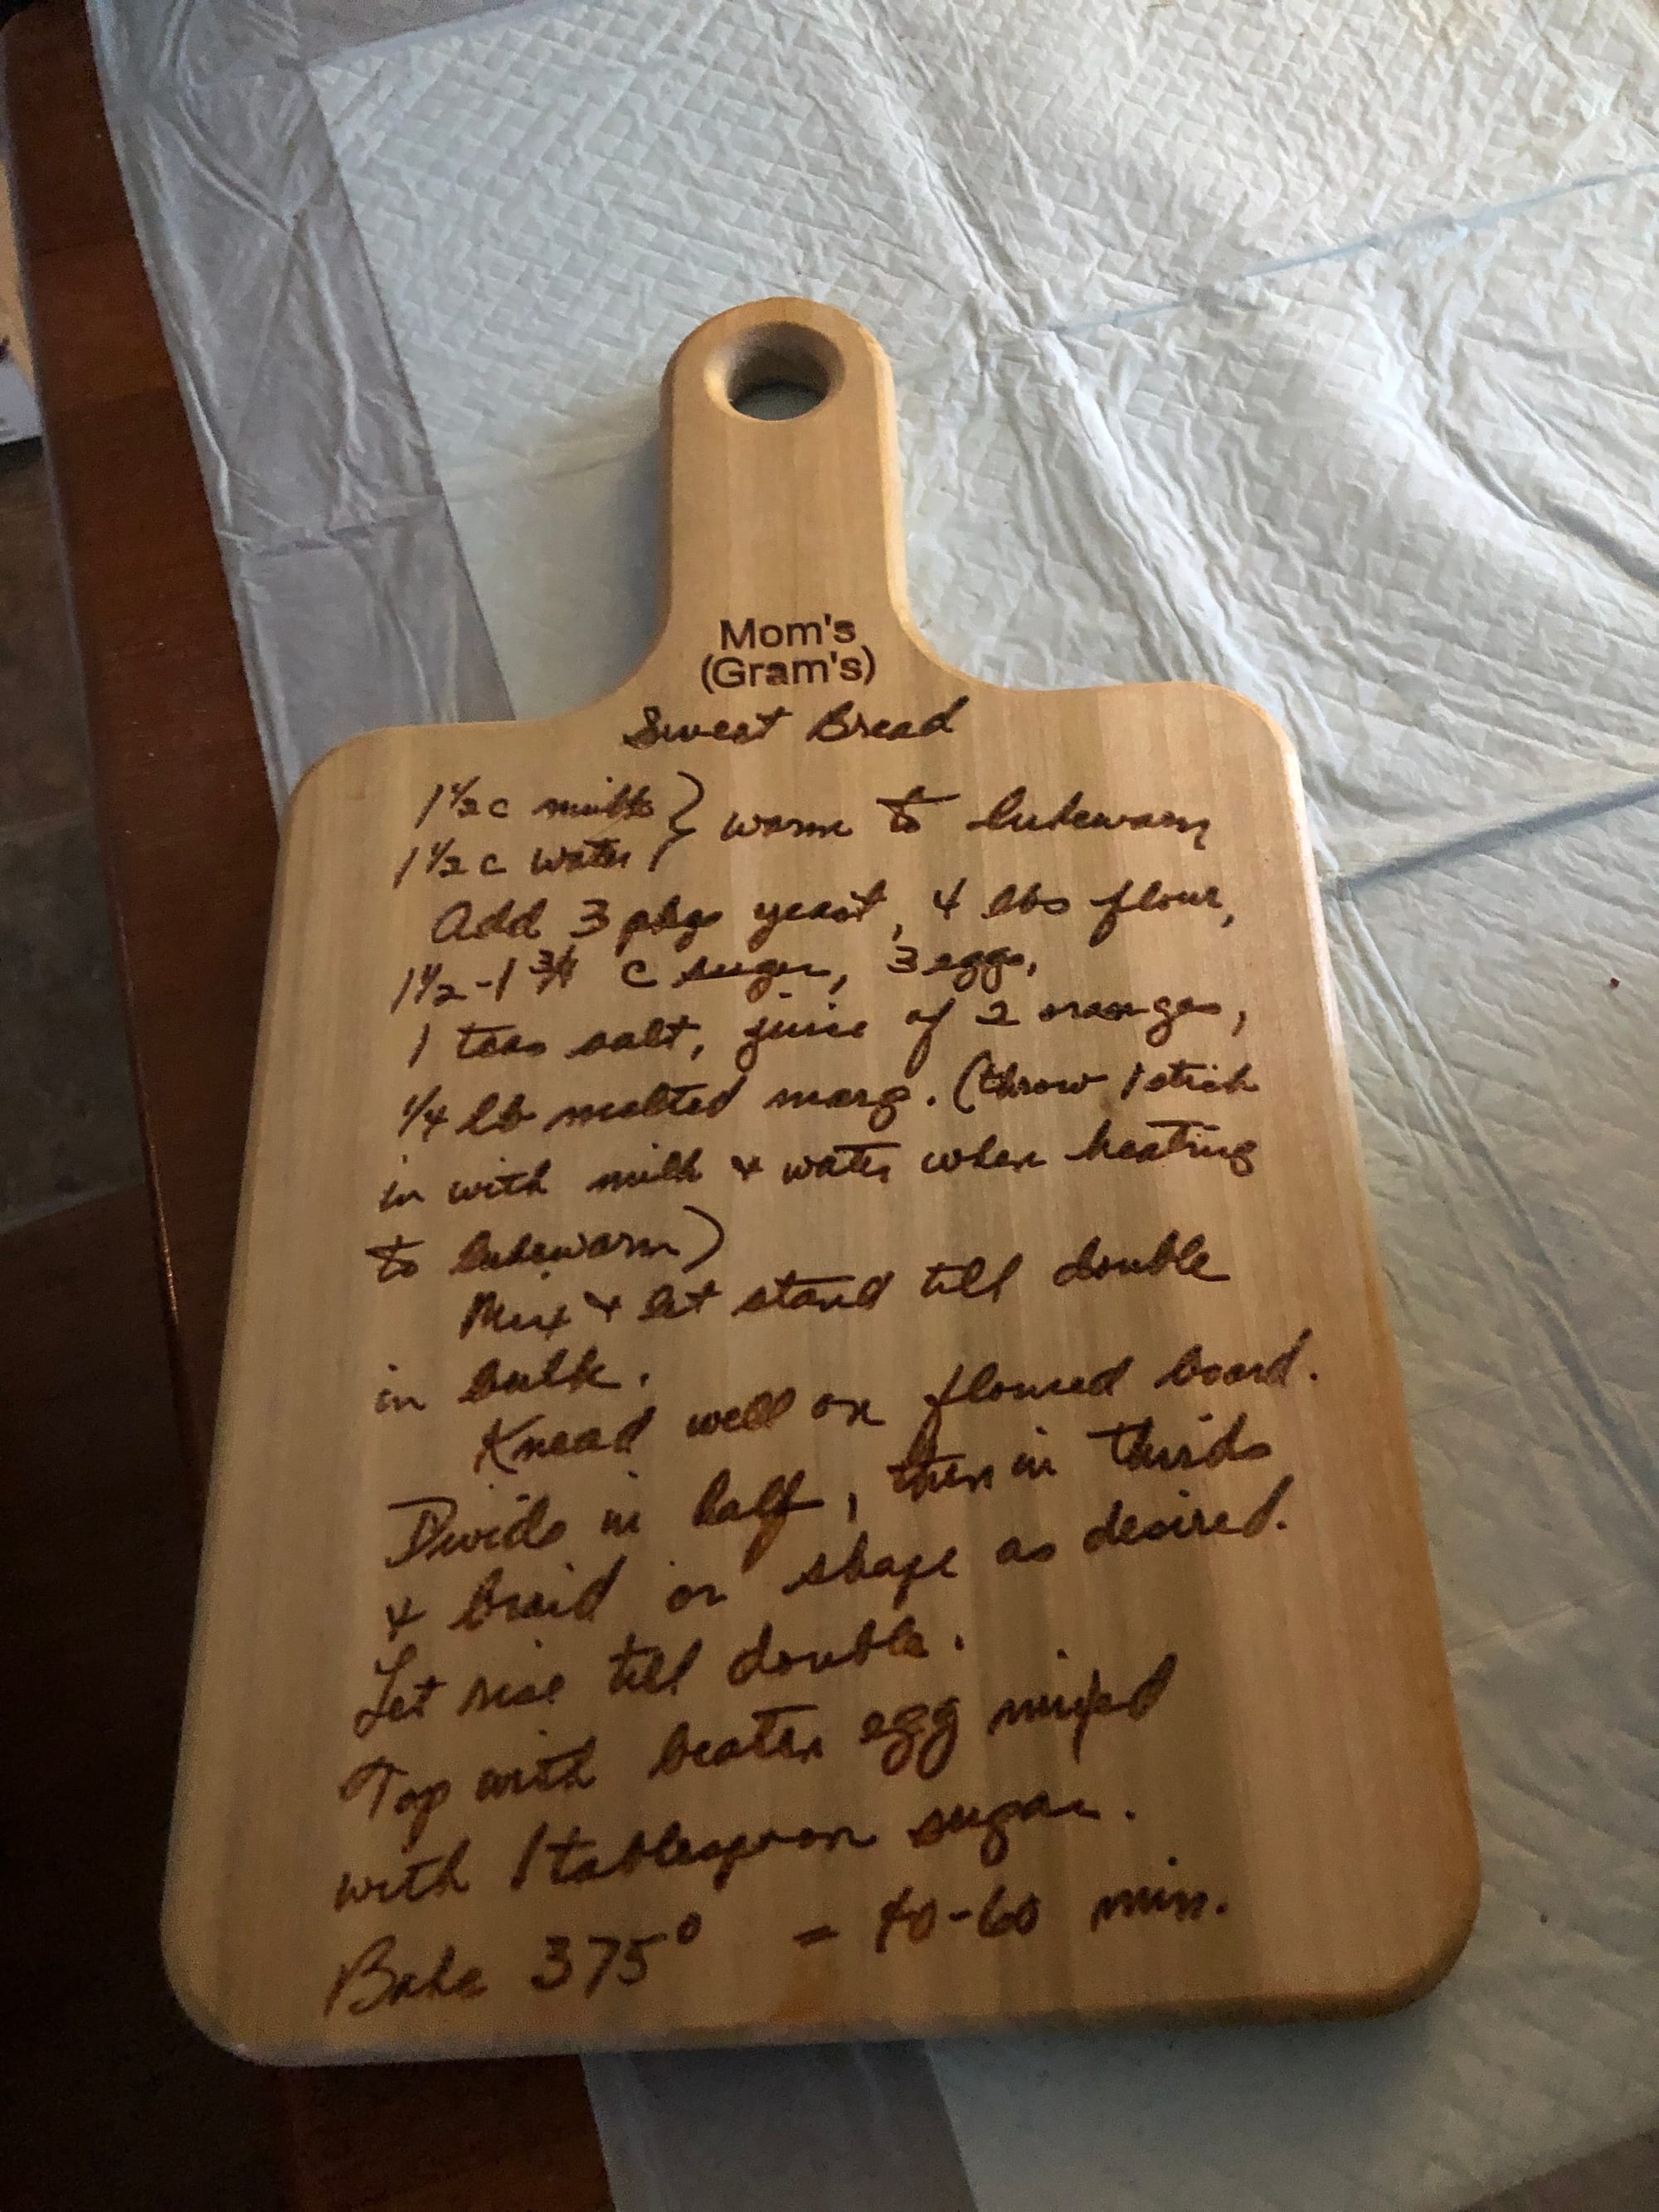 Mom's
(Gram's)
Sweet Bread
1 1/2 c milk } warm to lukewarm
1 1/2 c water
Add 3 pkgs yeast, 4 lbs flour,
1 1/2 - 1 3/4 c sugar, 3 eggs,
1 teas salt, juice of 2 oranges,
1/4 lb melted marg. (throw 1 stick
in with milk & water when heating
to lukewarm)
Mix & let stand till double
in bulk.
Knead well on floured board.
Divide in half, then in thirds
& braid or shape as desired.
Let rise till double.
Top with beaten egg mixed
with 1 tablespoon sugar.
Bake 375° - 40-60 min.